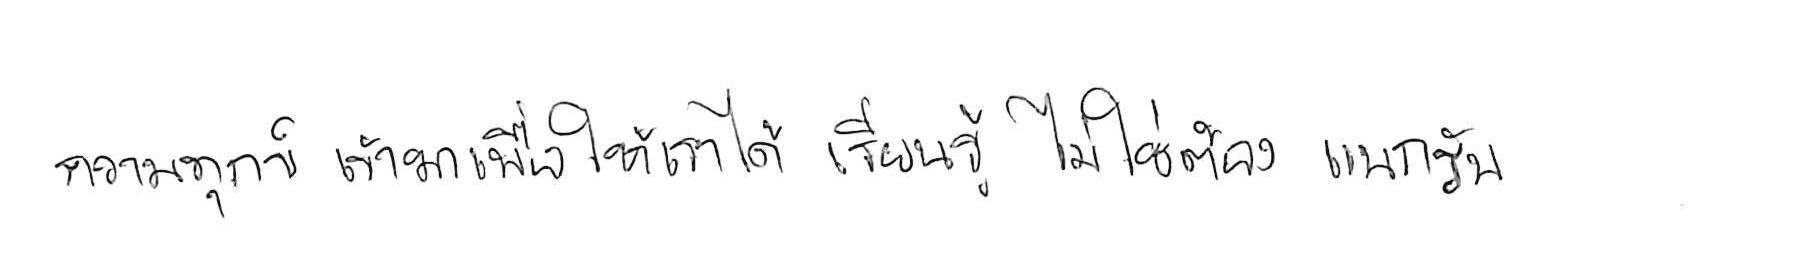 ความทุกข์ เข้ามาเพื่อให้เราได้ เรียนรู้ ไม่ใช่ต้อง แบกรับ